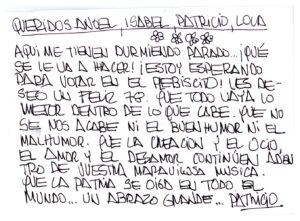 QUERIDOS ANGEL, ISABEL PATRICIO, LOLA
AQUI ME TIENEN DURMIENDO PARADO... ¡QUÉ
SE LE VA A HACER! ¡ESTOY ESPERANDO
PARA VOTAR EN EL PLEBISCITO! LES DE-
SEO UN FELIZ 78. QUE TODO VAYA LO
MEJOR DENTRO DE LO QUE CABE. QUE NO
SE NOS ACABE NI EL BUEN HUMOR NI EL
MALHUMOR. QUE LA CREACION Y EL OCIO,
EL AMOR Y EL DESAMOR CONTINÚEN ADEN-
TRO DE VUESTRA MARAVILLOSA MUSICA.
QUE LA PATRIA SE OIGA EN TODO EL
MUNDO... UN ABRAZO GRANDE... PATRICIO